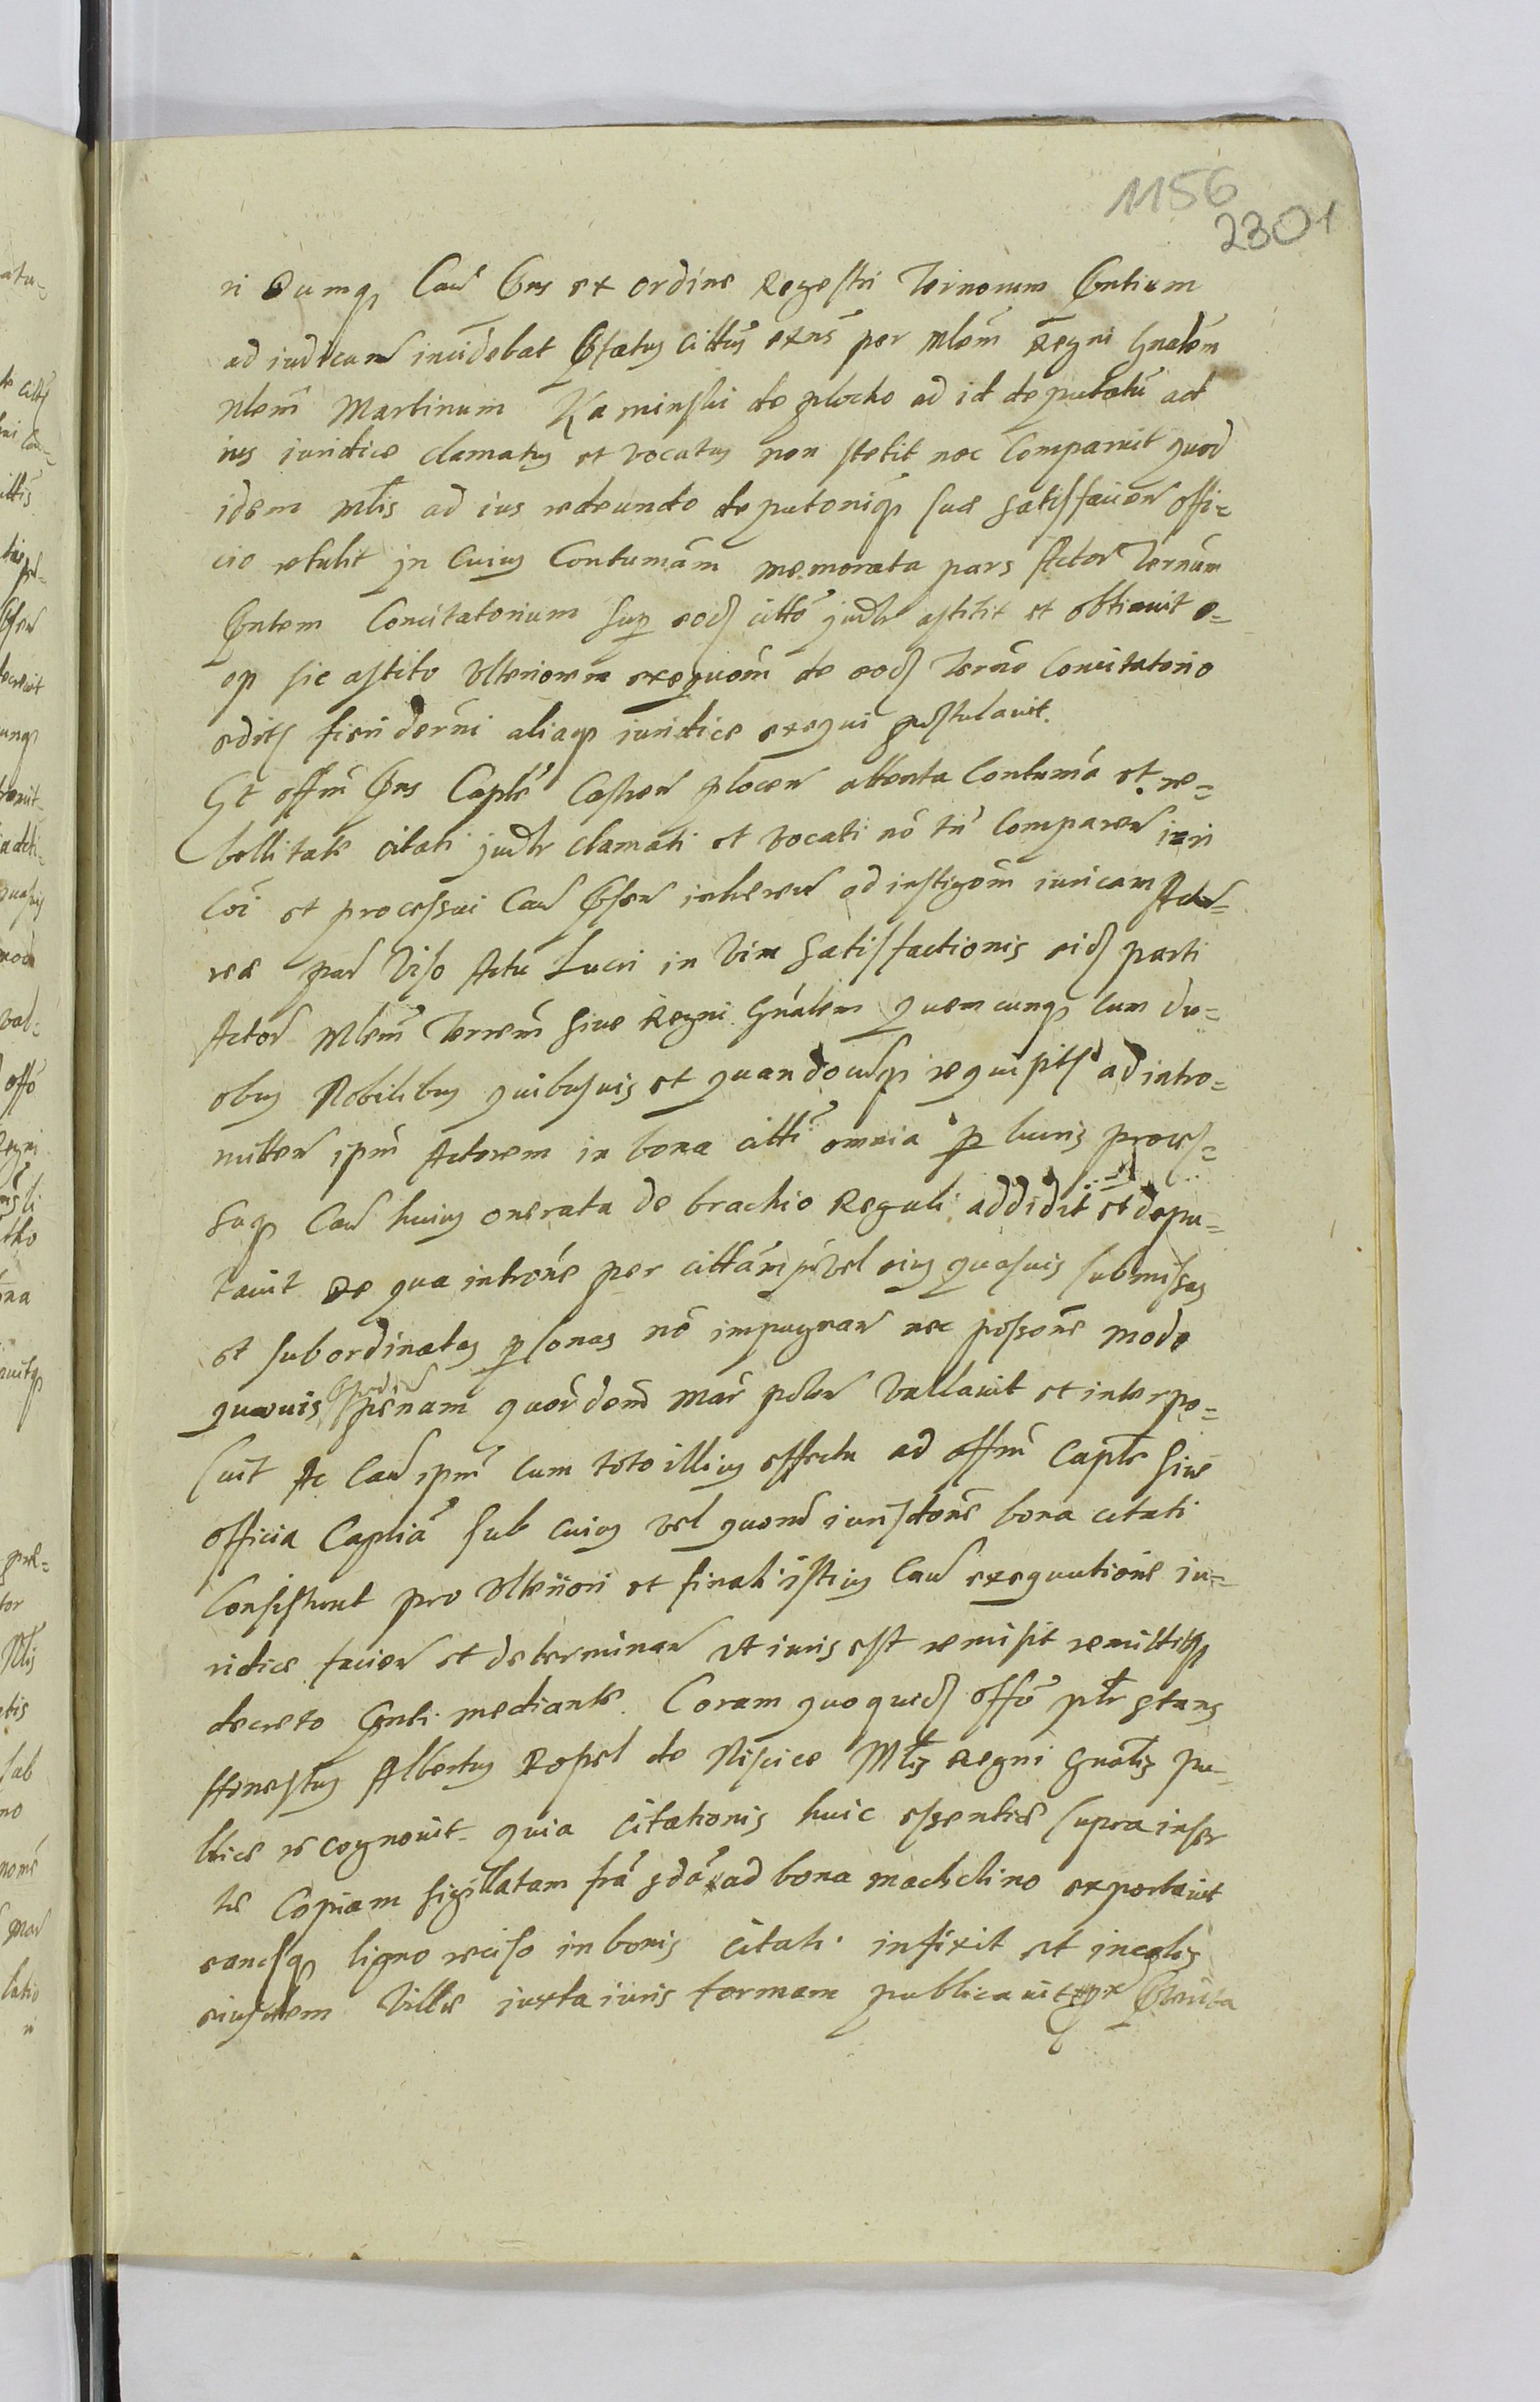 1156
2301
ri Dumq Cau Pns ex ordine Regestri Terminorum Pntium
ad iudicanđ incidebat Pfatus cittus extns per Mlem Regni Gnalem
Nlem Martinum Kaminski de plocko ad id deputatū ad
ius iuridice clamatus et vocatus non stetit nec Comparuit quod
idem Mlis ad ius redeundo deputoniq suæ satisfacien offi=
cio retulit in Cuius Contumām memorata pars Actor Ternūm
Pntem Concitatorium sup eod citto judlr astitit et obtinuit e=
oq sic astito Ulteriorem exequoīm de eod Terno Concitatorio
edits fieri derni aliaq iuridice exequi postulavit.
Et offm Pns Caple Castren plocen attenta Contumā et re=
bellitate citati judlr clamati et vocati nō tn Comparen iuri
Coi et processui Cau Psen inheren ad instigoīm iuricam Actor=
reæ par Viso Actu Lucri in Vim Satisfactionis eid parti
Actor Mlem Terrem sive Regni Gnalem Quemcunq cum du=
obus Nobilibus quibusvis et quandocunq requisits ad intro=
mitten ipm Actorem in bona citti omnia p lucris proces=
suq Cau huius onerata de brachio Regali addidit et depu=
tavit De qua introne per cittām vel eius quasvis submissas
et subordinatas psonas nō impugnan nec possone modo
quovis pœnam quordem Mar polen Vallavit et interpo=
suit Ac Cau ipm cum toto illius effectu ad offm Caple sive
officia Caplia sub cuius vel quorum iurisdtone bona citati
Consistunt pro Ulteriori et finali istius Cau exequutione iu=
ridice facien et determinan Ut iuris est remisit remittitq
decreto Pnti mediante. Coram quoquid offo plr stans
Honestus Albertus Ropel de Niscice Mlis Regni Gnalis pu=
blice recognovit quia Citationis huic essentiæ supra inser
tæ Copiam sigillatam fra ad bona machclino exportavit
eandsq ligno reciso in bonis Citati infixit et incolis
eiusdem Villæ iuxta iuris formam publicavit